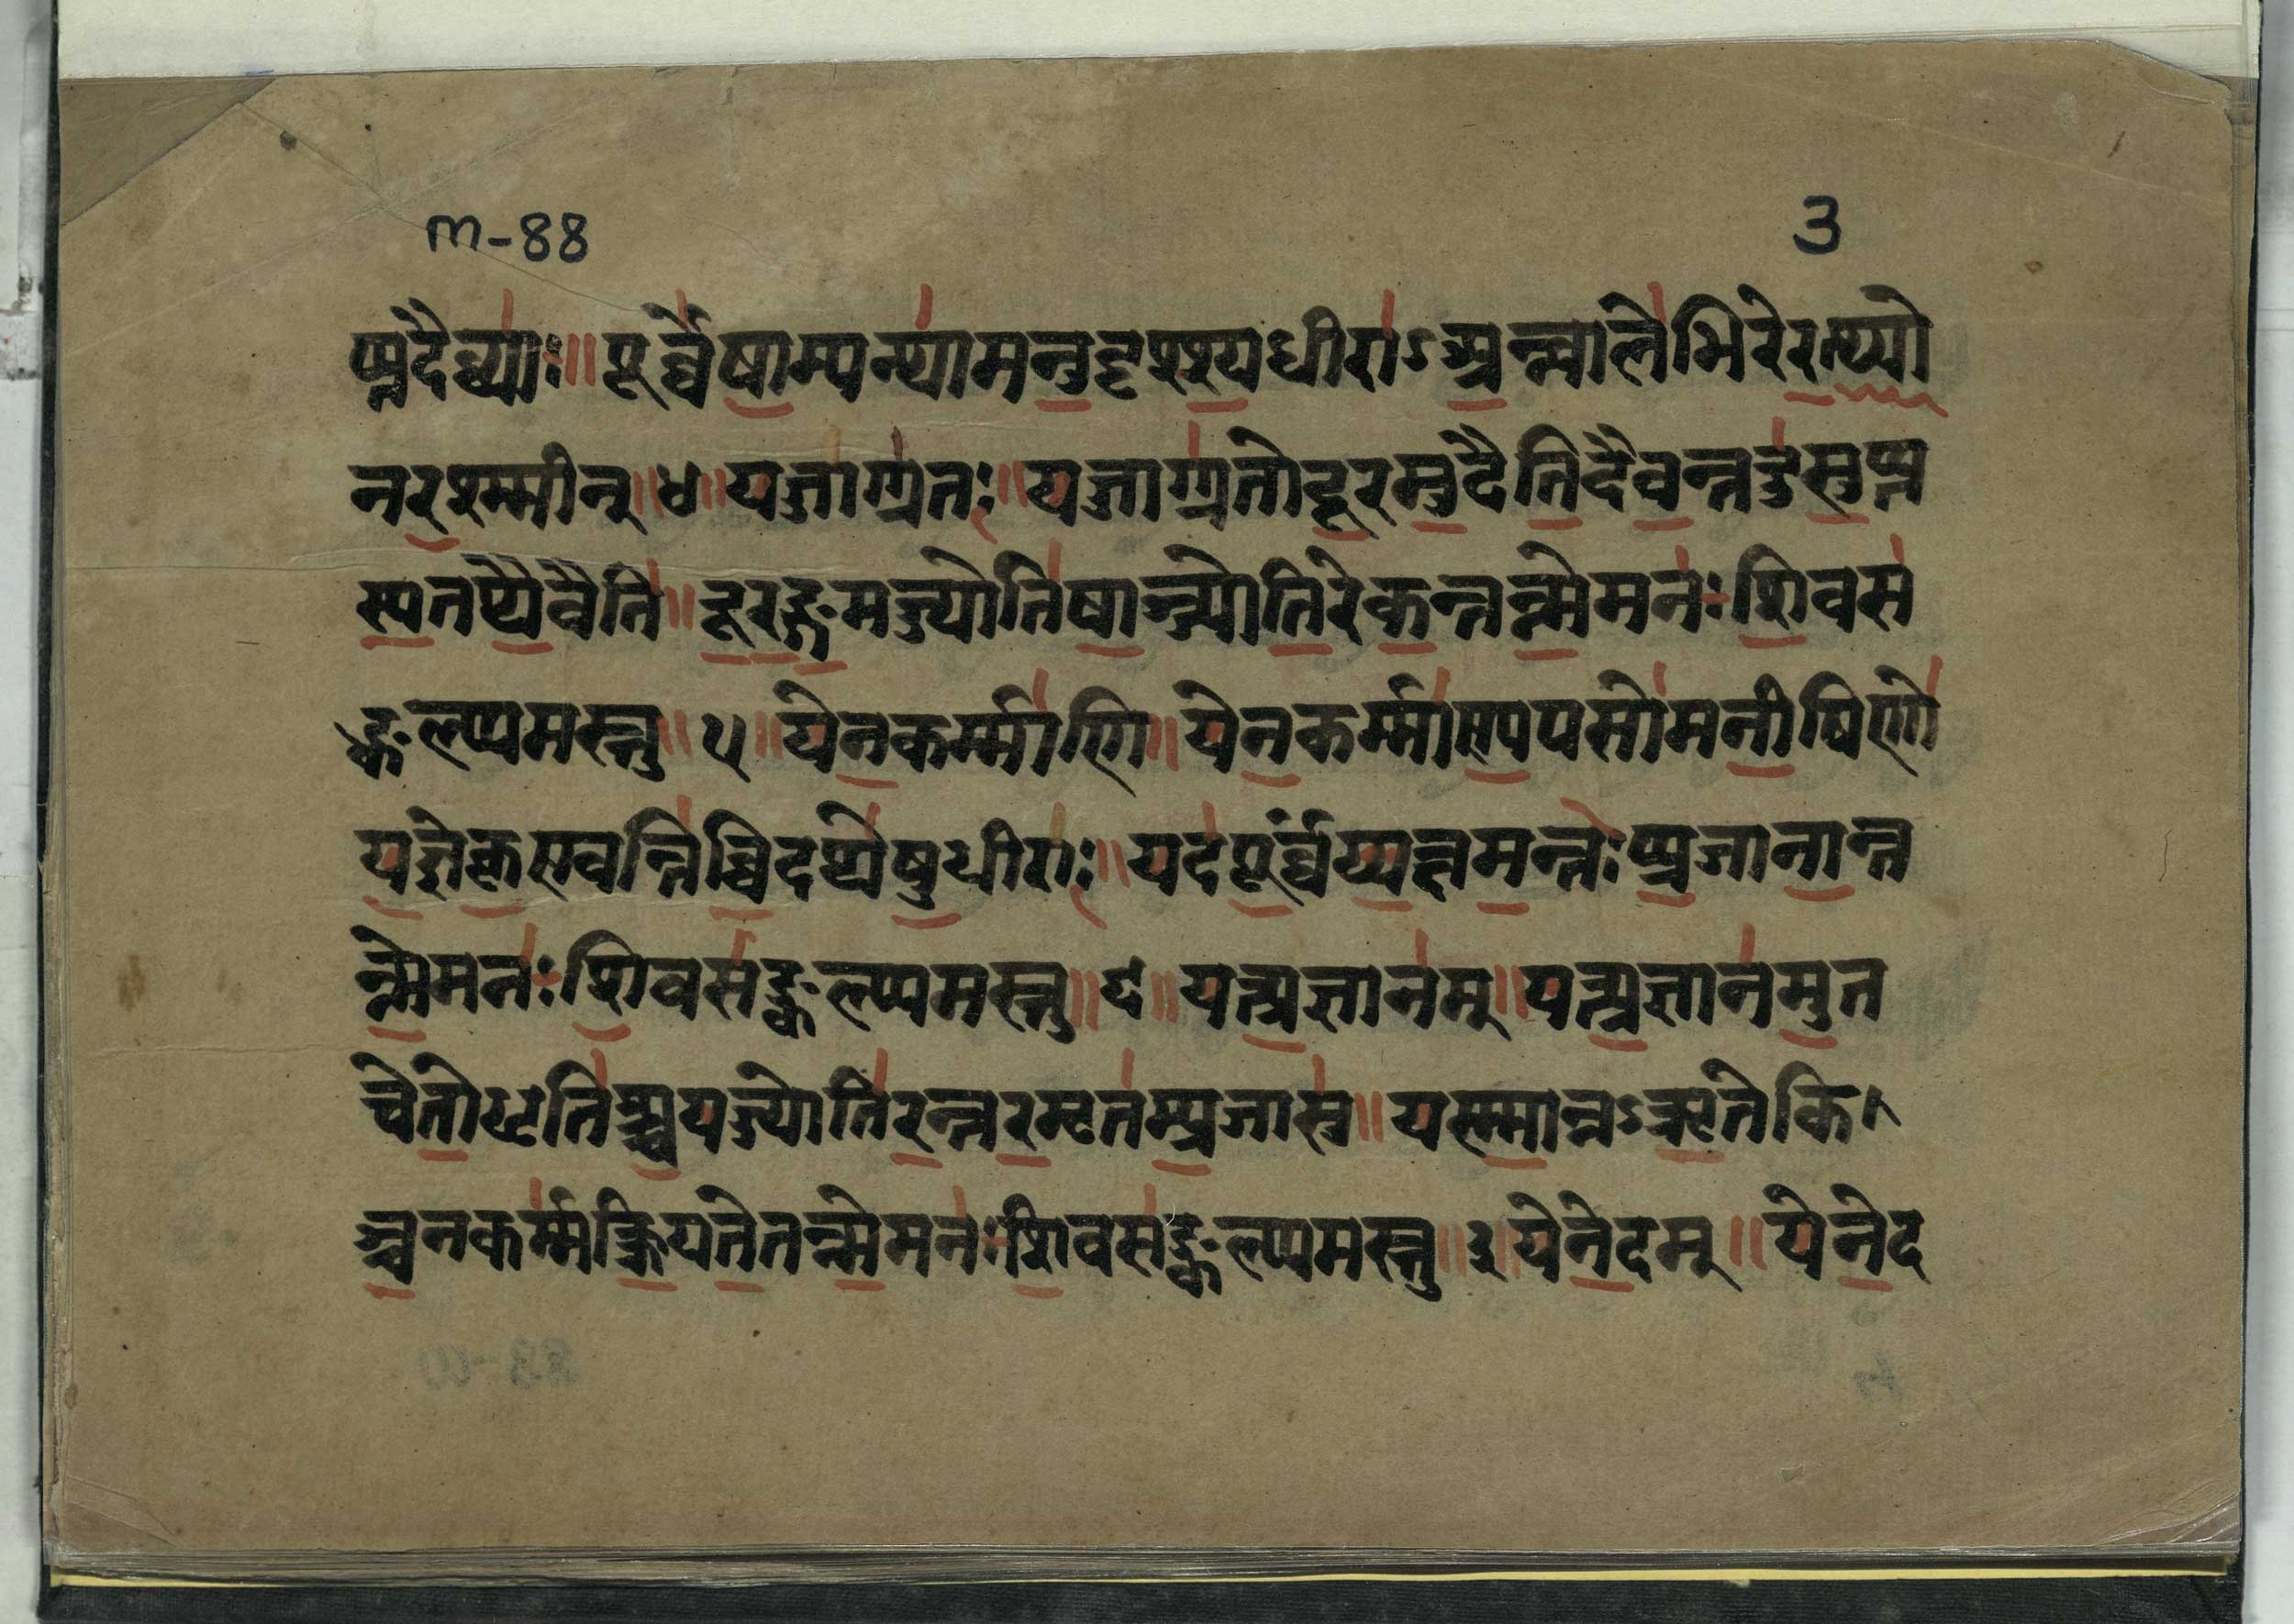 m-88 3
प्प्तदैव्व्याः॑॥ पूर्व्वे॑षा॒म्पन्था॑मनु॒दृश्श्य॒धीरा॑ऽअ॒न्न्वाले॑भिरेर॒त्थ्यो
नर॒श्म्मीन्॥४॥ यज्जाग्ग्र॑तः॥ यज्जाग्ग्र॑तोदू॒रमु॒दैति॒दैव॒न्तदु॑सु॒प्प्त
स्य॒तथै॒वैति॑॥ दू॒र॒ङ्ग॒मञ्ज्योति॑षा॒ञ्ज्योति॒रेक॒न्तन्न्मे॒मनः॑शि॒वस॑
ङ्कल्प्पमस्तु॥५॥ येन॒कर्म्मा॑णि॥ येन॒कर्म्मा॑ण्य॒पसो॑मनी॒षिणो॑
य॒ज्ञेकृ॒ण्वन्ति॑वि॒दथे॑षु॒धीराः॑॥ यद॑पू॒र्व्वंय्य॒क्षम॒न्तःप्प्र॒जाना॒न्त
न्न्मे॒मनः॑शि॒वस॑ङ्कल्प्पमस्तु॥६॥ यत्प्र॒ज्ञान॑म्॥ यत्प्र॒ज्ञान॑मु॒त
चेतो॒धृति॑श्च॒यज्ज्योति॑र॒न्तर॒मृत॑म्प्र॒जासु॑॥ यस्म्मा॒न्नऽऋ॒तेकि
ञ्च॒नकर्म्म॑क्रि॒यते॒तन्न्मे॒मनः॑शि॒वस॑ङ्कल्प्पमस्तु॥३॥ येने॒दम्॥ येने॒द